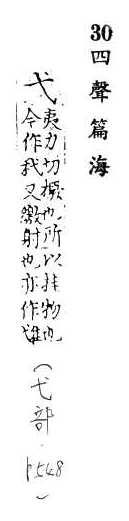 30四聲篇海
弋
夷力切橛也所以挂物也
今作杙又繳射也亦作㢤
（弋部．p.548）